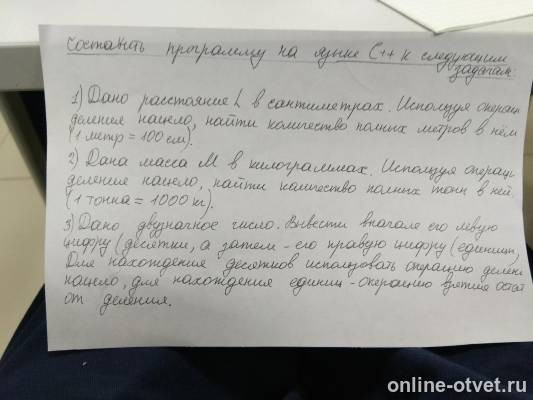 Составить программу на языке C++ к следующим
задачам:
1) Дано расстояние L в сантиметрах. Используя операц
деления нацело, найти количество полных метров в нём
(1 метр = 100 см).
2) Дана масса M в килограммах. Используя операци
деление нацело, найти количество полных тонн в ней
(1 тонна = 1000 кг).
3) Дано двузначное число. Вывести вначале его левую
цифру (десятки, а затем - его правую цифру (единицы)
Для нахождения десятков использовать операцию делени
нацело, для нахождения единиц - операцию взятия остат
от деления.
online-otvet.ru